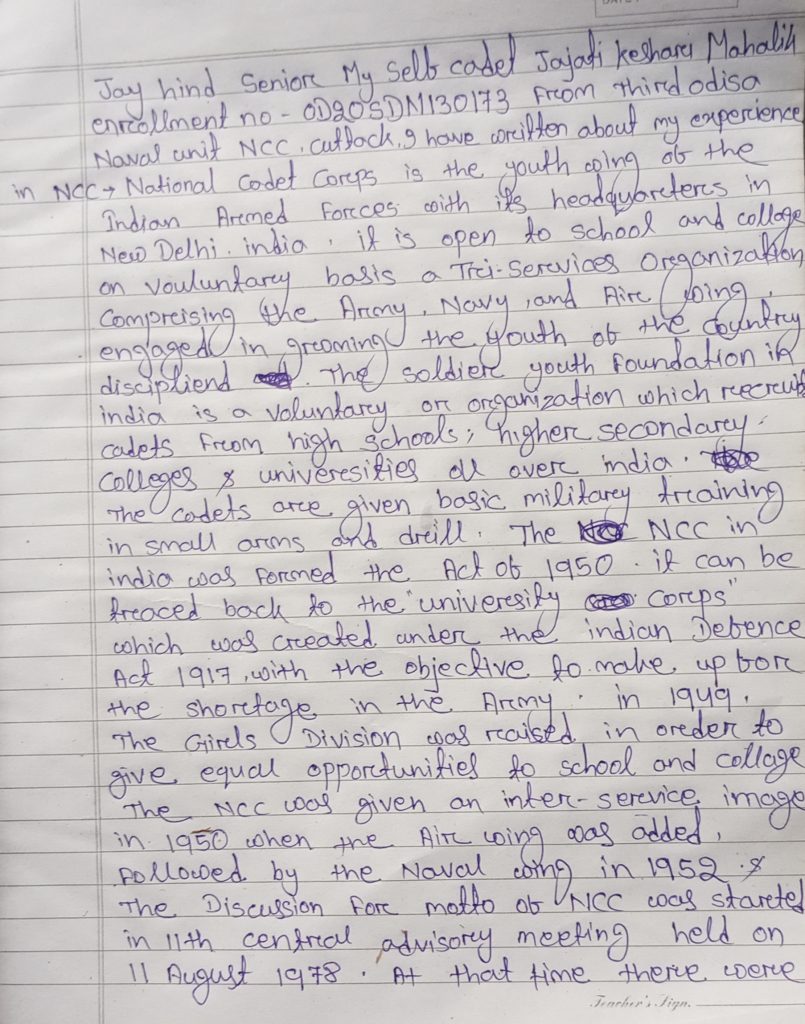 DATE
Jay hind Seniore My Selb cadet Jajati keshari Mahalik
enrcollment no - OD20SDN130173 From third odisa
Naval unit NCC, Cuttack, I have worcitten about my expercience
in NCC → National Cadet Corcps is the youth wing ob the
Indian Arcmed Forcces with its headquarcterecs in
New Delhi. india, it is open to school and collage
on vouluntarcy basis a Trci-Sercvices Orcganization
Comprcising the Arcmy, Navy, and Airc wing,
engaged in grcoming the youth ob the country
discipliend. The soldierc youth Foundation in
india is a voluntarcy orc orcganization which recrcuit
cadets From high schools; higherc secondarcy-
Colleges & univercsities all overc india.
The cadets arce given basic militarcy trcaining
in small arcms and drcill. The NCC in
india was Forcmed the Act ob 1950. it can be
trcaced back to the "univercsity Corcps"
which was crceated underc the indian Debence
Act 1917, with the objective to make up borc
the shorctage in the Arcmy. in 1949,
The Gircls Division was rcaised in orcderc to
give equal opporctunities to school and collage
The NCC was given an interc-sercvice image
in 1950 when the Airc wing was added,
Followed by the Naval wing in 1952 &
The Discussion Forc motto ob NCC was starcted
in 11th centrcal advisorcy meeting held on
11 August 1978. At that time therce werce
Teacher's Sign.